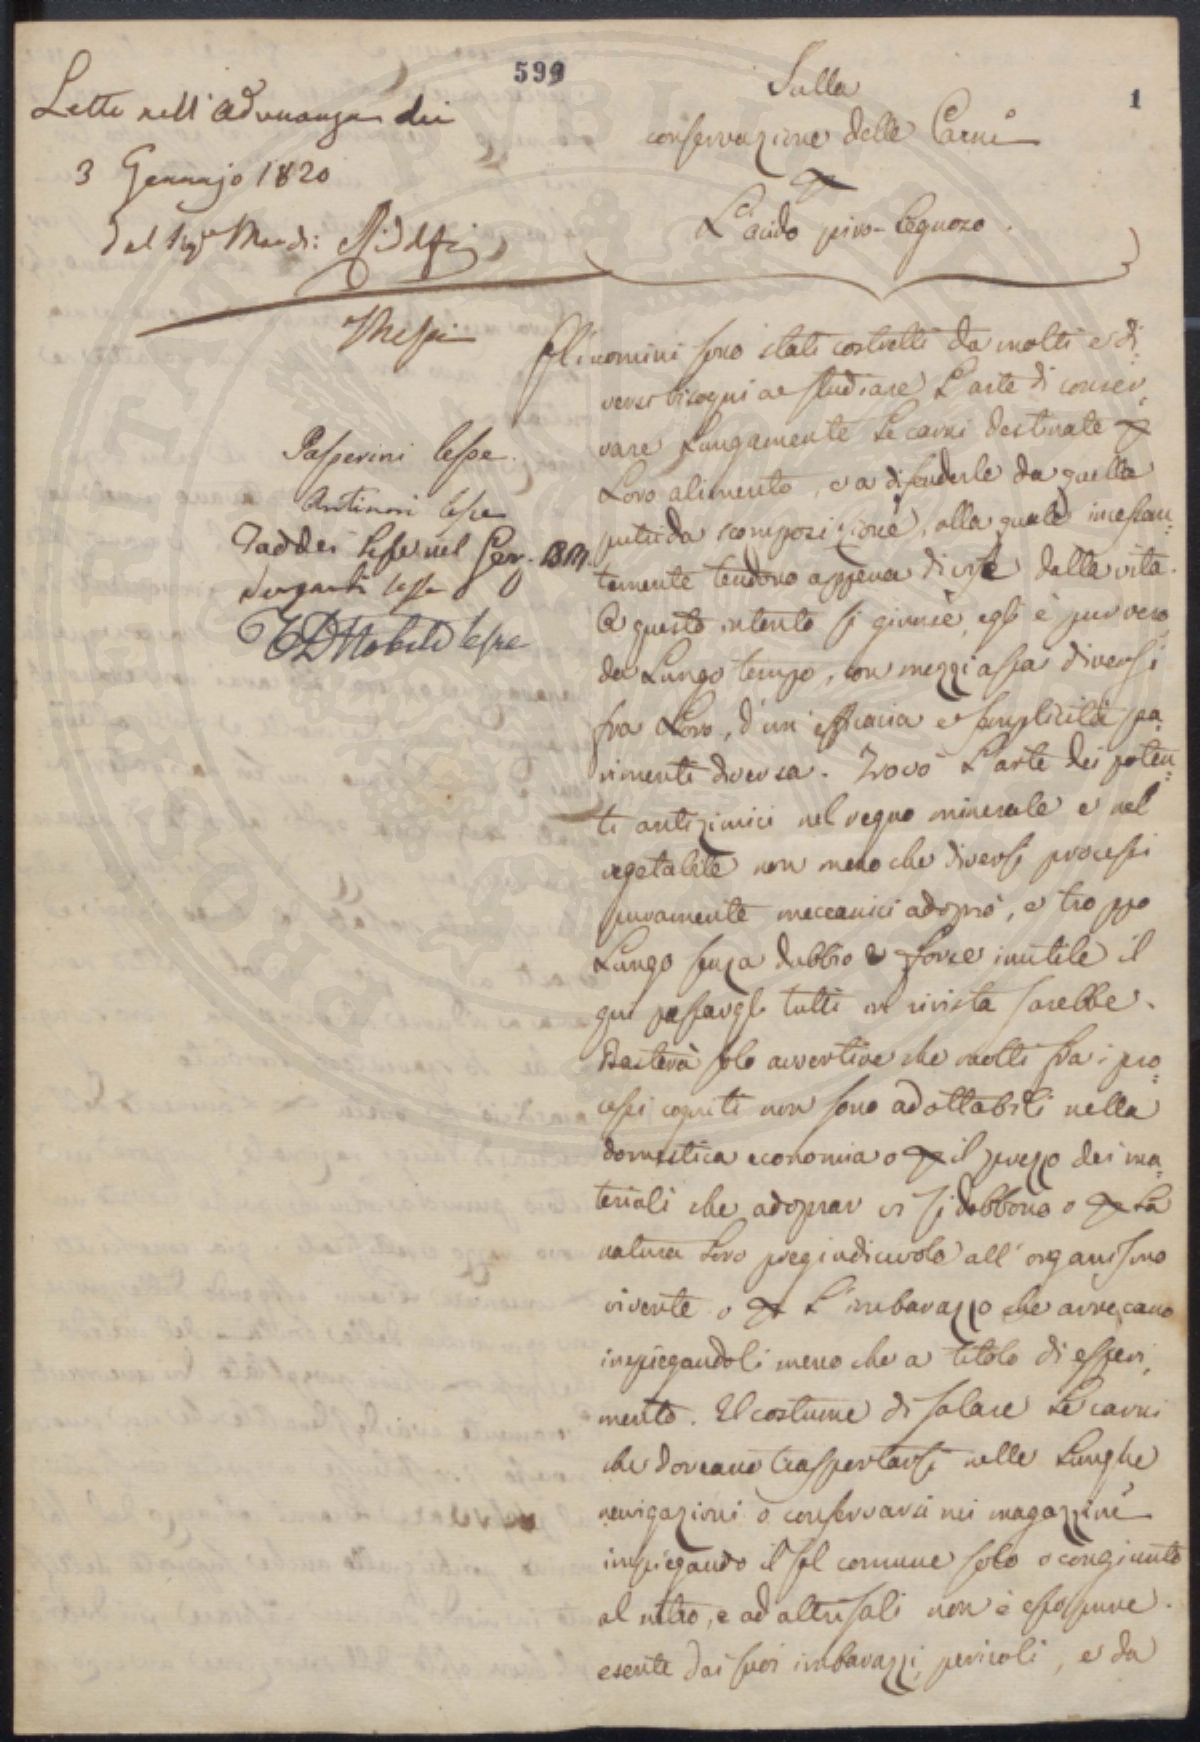 599
1
Lette nell'adunanza dei
3 Gennajo 1820
Dal Sigr March: Ridolfi
Sulla
conservazione delle Carni
p
L'acido piro-legnoso.
Passerini lesse.
Antinori lesse
Taddei lesse nel Gen.
lesse
Nobili lesse
Gli uomini sono stati costretti da molti e di=
versi bisogni a studiare l'arte di conser=
vare lungamente le carni destinate p
loro alimento, e a difenderle da quella
putrida scomposizione, alla quale incessan=
temente tendono appena di vita.
A questo intento si giunse, egli è pur vero,
da lungo tempo, con mezzi assai diversi
fra loro, d'un'efficacia e semplicità pa=
rimente diversa. Trovò l'arte dei poten=
ti antizimici nel regno minerale e nel
vegetabile non meno che diversi processi
puramente meccanici adoprò, e troppo
lungo senza dubbio e forse inutile il
qui passargli tutti in rivista sarebbe.
Basterà solo avvertire che molti fra i pro=
cessi cogniti non sono adottabili nella
domestica economia o p il prezzo dei ma=
teriali che adoprar vi si debbono o p la
natura loro pregiudicevole all'organismo
vivente o p l'imbarazzo che arrecano
impiegandoli meno che a titolo di esperi=
mento. Il costume di salare le carni
che doveano trasportarsi nelle lunghe
navigazioni o conservarsi nei magazzini
impiegando il sal comune solo o congiunto
al nitro, e ad altri sali non è esso pure
esente dai suoi imbarazzi, pericoli, e da
PVBLICE
PROSPERITATI